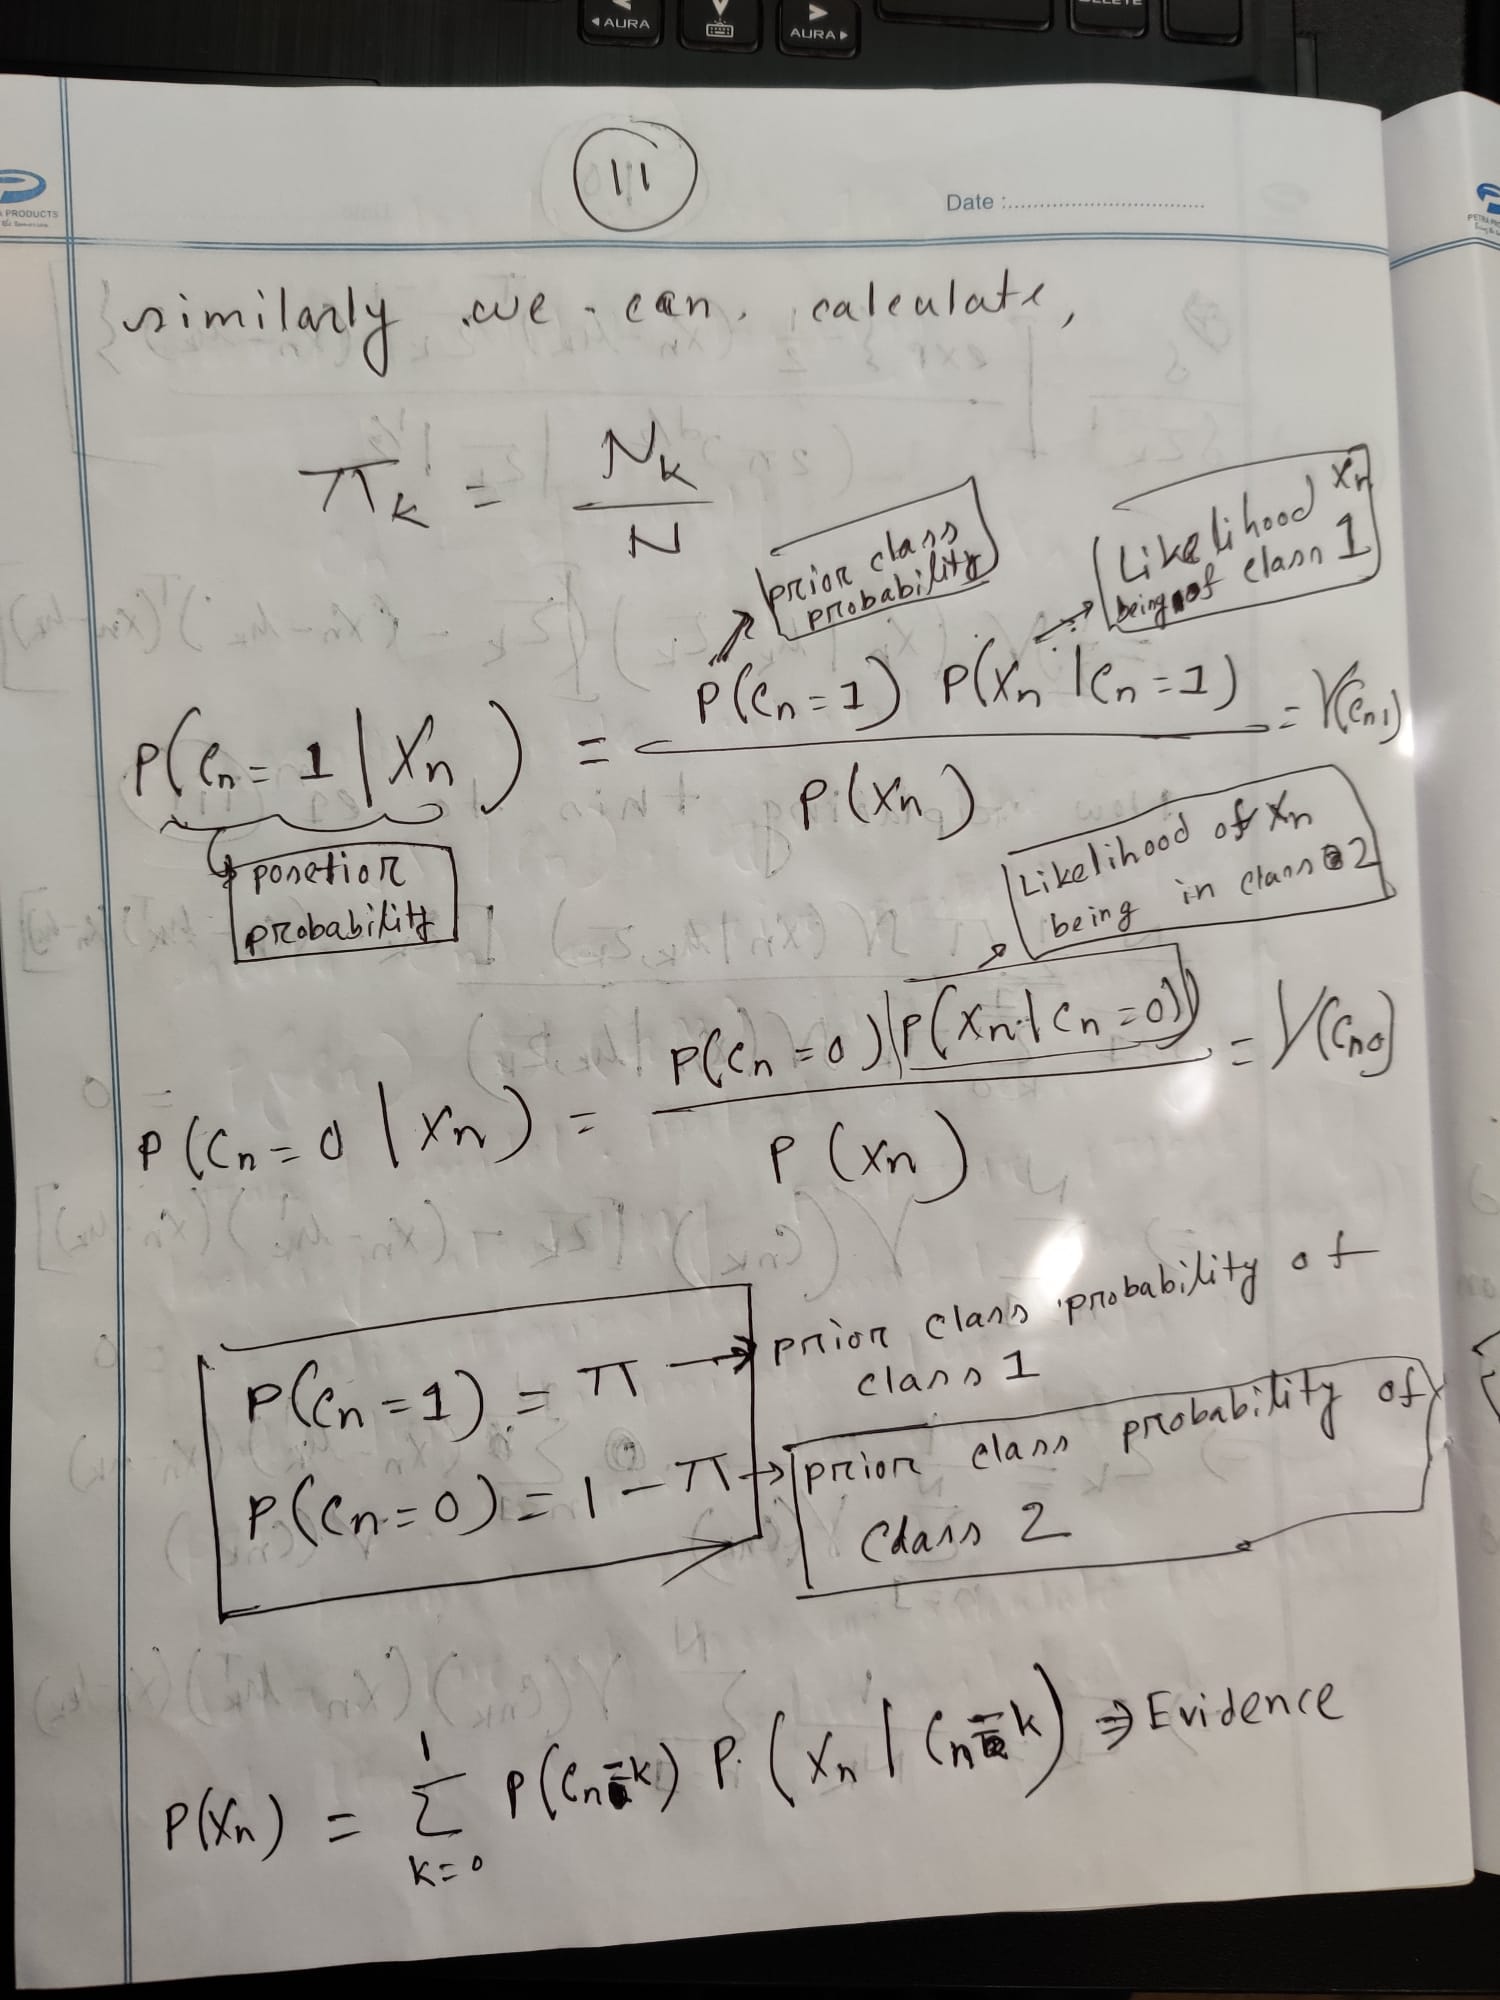 AURA
AURA
DELETE
111
Date :
PRODUCTS
similarly we can calculate,
π_k = N_k / N
prior class probability
Likelihood Xn being of class 1
P(Cn = 1 | Xn) = P(Cn = 1) P(Xn | Cn = 1) / P(Xn) = γ(Cn1)
posetior probability
Likelihood of Xn being in class 2
P(Cn = 0 | Xn) = P(Cn = 0) P(Xn | Cn = 0) / P(Xn) = γ(Cn0)
P(Cn = 1) = π → prior class probability of class 1
P(Cn = 0) = 1 - π → prior class probability of class 2
P(Xn) = Σ_{k=0}^{1} P(Cn = k) P(Xn | Cn = k) ⇒ Evidence